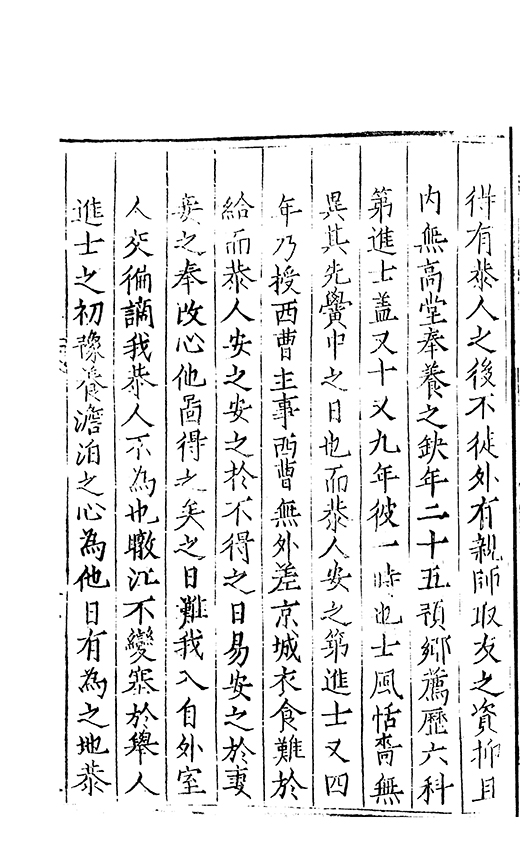 得有恭人之後不徒外有親師取友之資抑且
内無高堂奉養之缺年二十五領鄉薦歷六科
第進士蓋又十又九年彼一時也士風恬嗇無
異其先黌中之日也而恭人安之第進士又四
年乃授西曹主事西曹無外差京城衣食難於
給而恭人安之安之於不得之日易安之於妻
妾之奉改心他啚得之矣之日難我入自外室
人交徧謫我恭人不為也暾江不變塞於舉人
進士之初豫養澹泊之心為他日有為之地恭